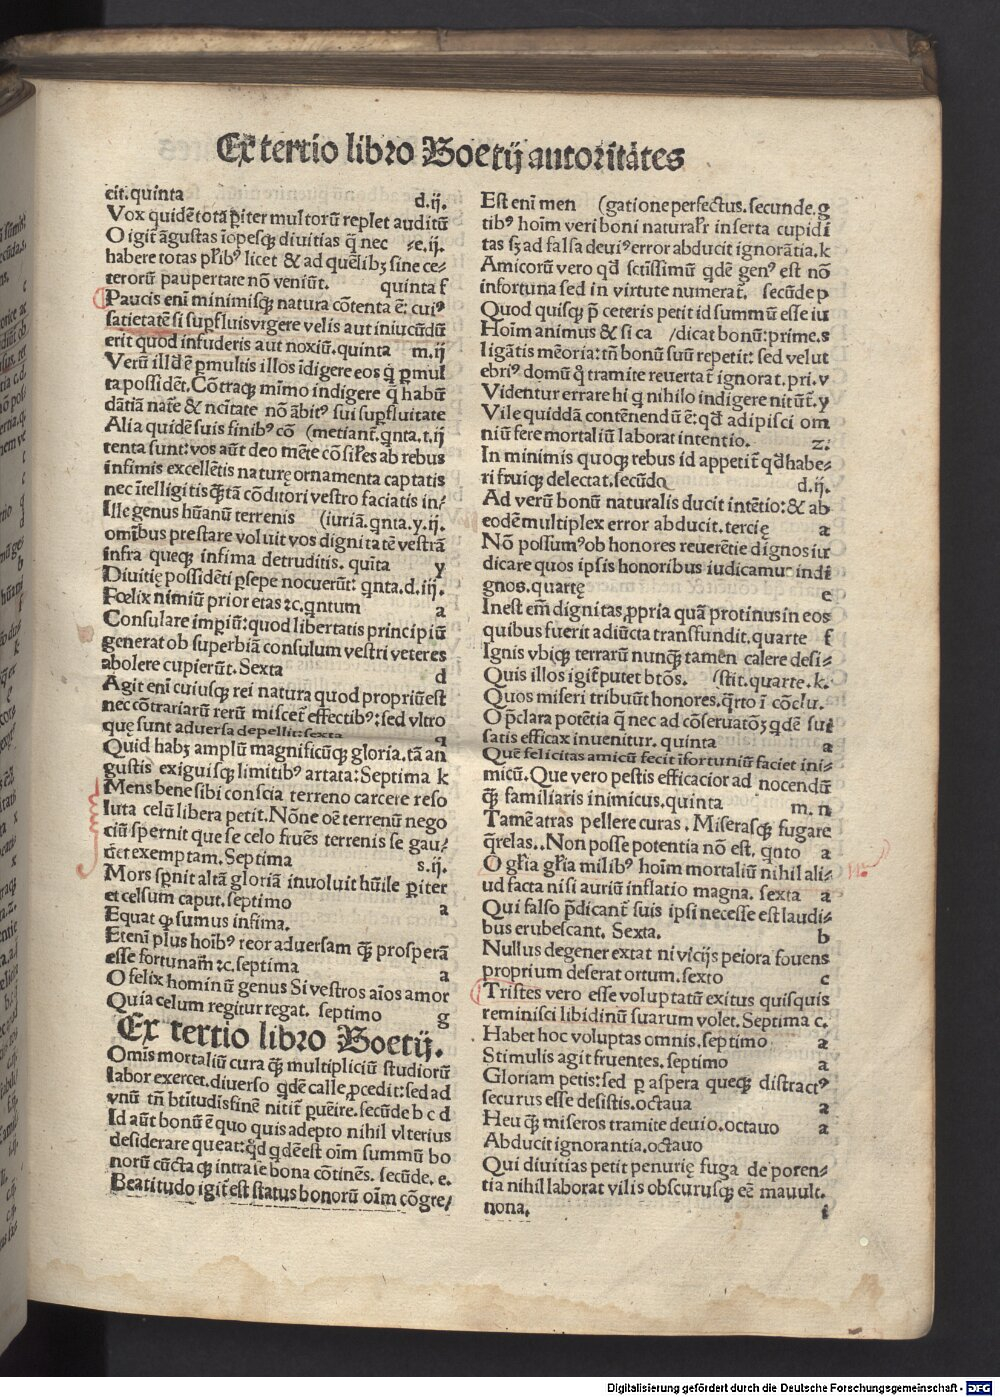 Ex tertio libro Boetij autoritates
cit. quinta d.ij.
Vox quidē tota p̱iter multorū replet auditū
O igit᷑ āgustas īopesq̃ diuitias q̄ nec ⸗e.ij.
habere totas pl'ribꝰ licet & ad quēlibꝫ sine ce⸗
terorū paupertate nō veniūt. quinta f
Paucis enī minimisq̃ natura cōtenta ē: cuiꝰ
satietatē si suꝑfluis vrgere velis aut iniucūdū
erit quod infuderis aut noxiū. quinta m.ij
Verū ill'd ē ꝑmultis illos idigere eos q̄ ꝑmul
ta possidēt. Cōtraq̃ mīmo indigere q̄ habū
dātiā nat᷑e & nc̄itate nō ābitꝰ sui suꝑfluitate
Alia quidē suis finibꝰ cō (metiant᷑. qnta. t.ij
tenta sunt: vos aūt deo mēte cōsil'es ab rebus
infimis excellētis naturę ornamenta captatis
nec ītelligitis q̄tā cōditori vestro faciatis in⸗
Ille genus hūanū terrenis (iuriā. qnta. y.ij.
omībus prestare voluit vos dignitatē vestrā
infra queq̃ infima detruditis. quīta y
Diuitię possidēti p̱sepe nocuerūt: qnta. d.iij.
Fœlix nimiū prior etas ⁊c. qntum a
Consulare impiū: quod libertatis principiū
generat ob superbiā consulum vestri veteres
abolere cupierūt. Sexta d
Agit enī cuiusq̃ rei natura quod propriū est
nec cōtrariarū rerū miscet᷑ effectibꝰ: sed vltro
quę sunt aduersa depellit: sexta q
Quid habꝫ amplū magnificūq̃ gloria. tā an
gustis exiguisq̃ limitibꝰ artata: Septima k
Mens bene sibi conscia terreno carcere reso
luta celū libera petit. Nōne oē terrenū nego
ciū spernit que se celo fruēs terrenis se gau⸗
det exemptam. Septima s.ij.
Mors sp̱nit altā gloriā inuoluit hūile p̱iter
et celsum caput. septimo a
Equat q̃ sumus infima.
Etenī plus hoībꝰ reor aduersam q̃ prosperā
esse fortunam ⁊c. septima a
O felix hominū genus Si vestros aīos amor
Quia celum regitur regat. septimo g
Ex tertio libro Boetij.
Omīs mortaliū cura q̃ multipliciū studiorū
labor exercet. diuerso qdē calle ꝓcedit: sed ad
vnū tn̄ btītudis finē nitit᷑ puēire. secūde b c d
Id aūt bonū ē quo quis adepto nihil vlterius
desiderare queat: qd̄ qdē est oīm summū bo
norū cūctaq̃ intra se bona cōtinēs. secūde. e.
Beatitudo igit᷑ est status bonorū oīm cōgre/
Est enī men (gatione perfectus. secunde. g
tibꝰ hoīm veri boni naturalr̄ inserta cupidi
tas sꝫ ad falsa deuiꝰ error abducit ignorātia. k
Amicorū vero qd̄ sctīssimū qdē genꝰ est nō
in fortuna sed in virtute numerat᷑. secūde p
Quod quisq̃ p̄ ceteris petit id summū esse iu
Hoīm animus & si ca /dicat bonū: prime. s
ligātis mēoria: tn̄ bonū suū repetit: sed velut
ebriꝰ domū q̄ tramite reuertat᷑ ignorat. pri. v
Videntur errare hi q nihilo indigere nitūt᷑. y
Vile quiddā contēnendū ē: qd̄ adipisci om
niū fere mortaliū laborat intentio. z:
In minimis quoq̃ rebus id appetit᷑ qd̄ habe⸗
ri fruiq̃ delectat. secūdo d.ij.
Ad verū bonū naturalis ducit intētio: & ab
eodē multiplex error abducit. tercię a
Nō possumꝰ ob honores reuerētie dignos iu
dicare quos ipsis honoribus iudicamus indi
gnos. quartę e
Inest em̄ dignitas ꝓpria quā protinus in eos
quibus fuerit adiūcta transfundit. quarte f
Ignis vbiq̃ terrarū nunq̃ tamen calere desi⸗
Quis illos igit᷑ putet btōs. /stit. quarte. k.
Quos miseri tribuūt honores. q̄rto ī cōclu.
O p̄clara potētia q̄ nec ad cōseruatōꝫ qdē sui
satis efficax inuenitur. quinta a
Quē felicitas amicū fecit īfortuniū faciet ini⸗
micū. Que vero pestis efficacior ad nocendū
q̃ familiaris inimicus. quinta m. n
Tamē atras pellere curas. Miserasq̃ fugare
q̄relas.. Non posse potentia nō est. qnto a
O gl'ia gl'ia milibꝰ hoīm mortaliū nihil ali⸗
ud facta nisi auriū inflatio magna. sexta a
Qui falso p̄dicant᷑ suis ipsi necesse est laudi⸗
bus erubescant. Sexta. b
Nullus degener extat ni vicijs peiora fouens
proprium deserat ortum. sexto c
Tristes vero esse voluptatū exitus quisquis
reminisci libidinū suarum volet. Septima c.
Habet hoc voluptas omnis. septimo a
Stimulis agit fruentes. septimo a
Gloriam petis: sed ꝑ aspera queq̃ distractꝰ
securus esse desistis. octaua a
Heu q̃ miseros tramite deuio. octauo a
Abducit ignorantia. octauo
Qui diuitias petit penurię fuga de poten⸗
tia nihil laborat vilis obscurusq̃ eē mauult.
nona. i
Digitalisierung gefördert durch die Deutsche Forschungsgemeinschaft - DFG